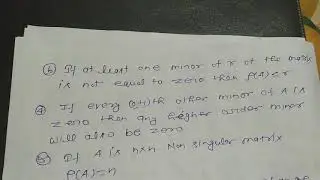 ⑥ If at least one minor of r of the matrix
is not equal to zero then ρ(A) ≤ r
④ If every (r+1)th other minor of A is
zero then any higher order minor
will also be zero
⑤ If A is n×n Non singular matrix
ρ(A)=n